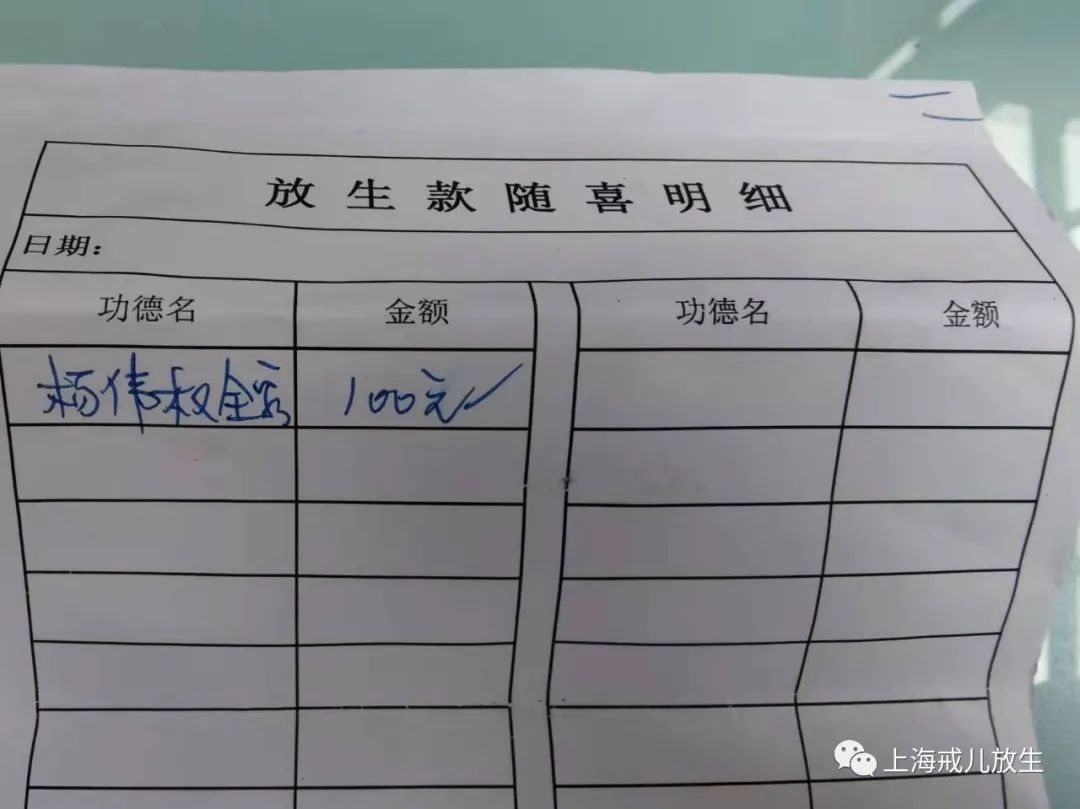 二
放生款随喜明细
日期：
功德名 金额 功德名 金额
杨伟权全家 100元✓
上海戒儿放生